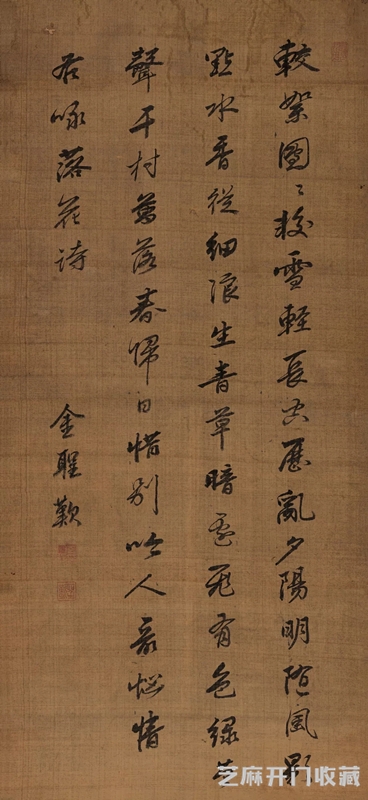 較絮團〻校雪輕長空歷亂夕陽明隨風影
點水香從細浪生青草暗處飛有色綠
聲千村萬落春歸日惜別吟人最惱情
右咏落花詩 金聖歎
芝麻开门收藏